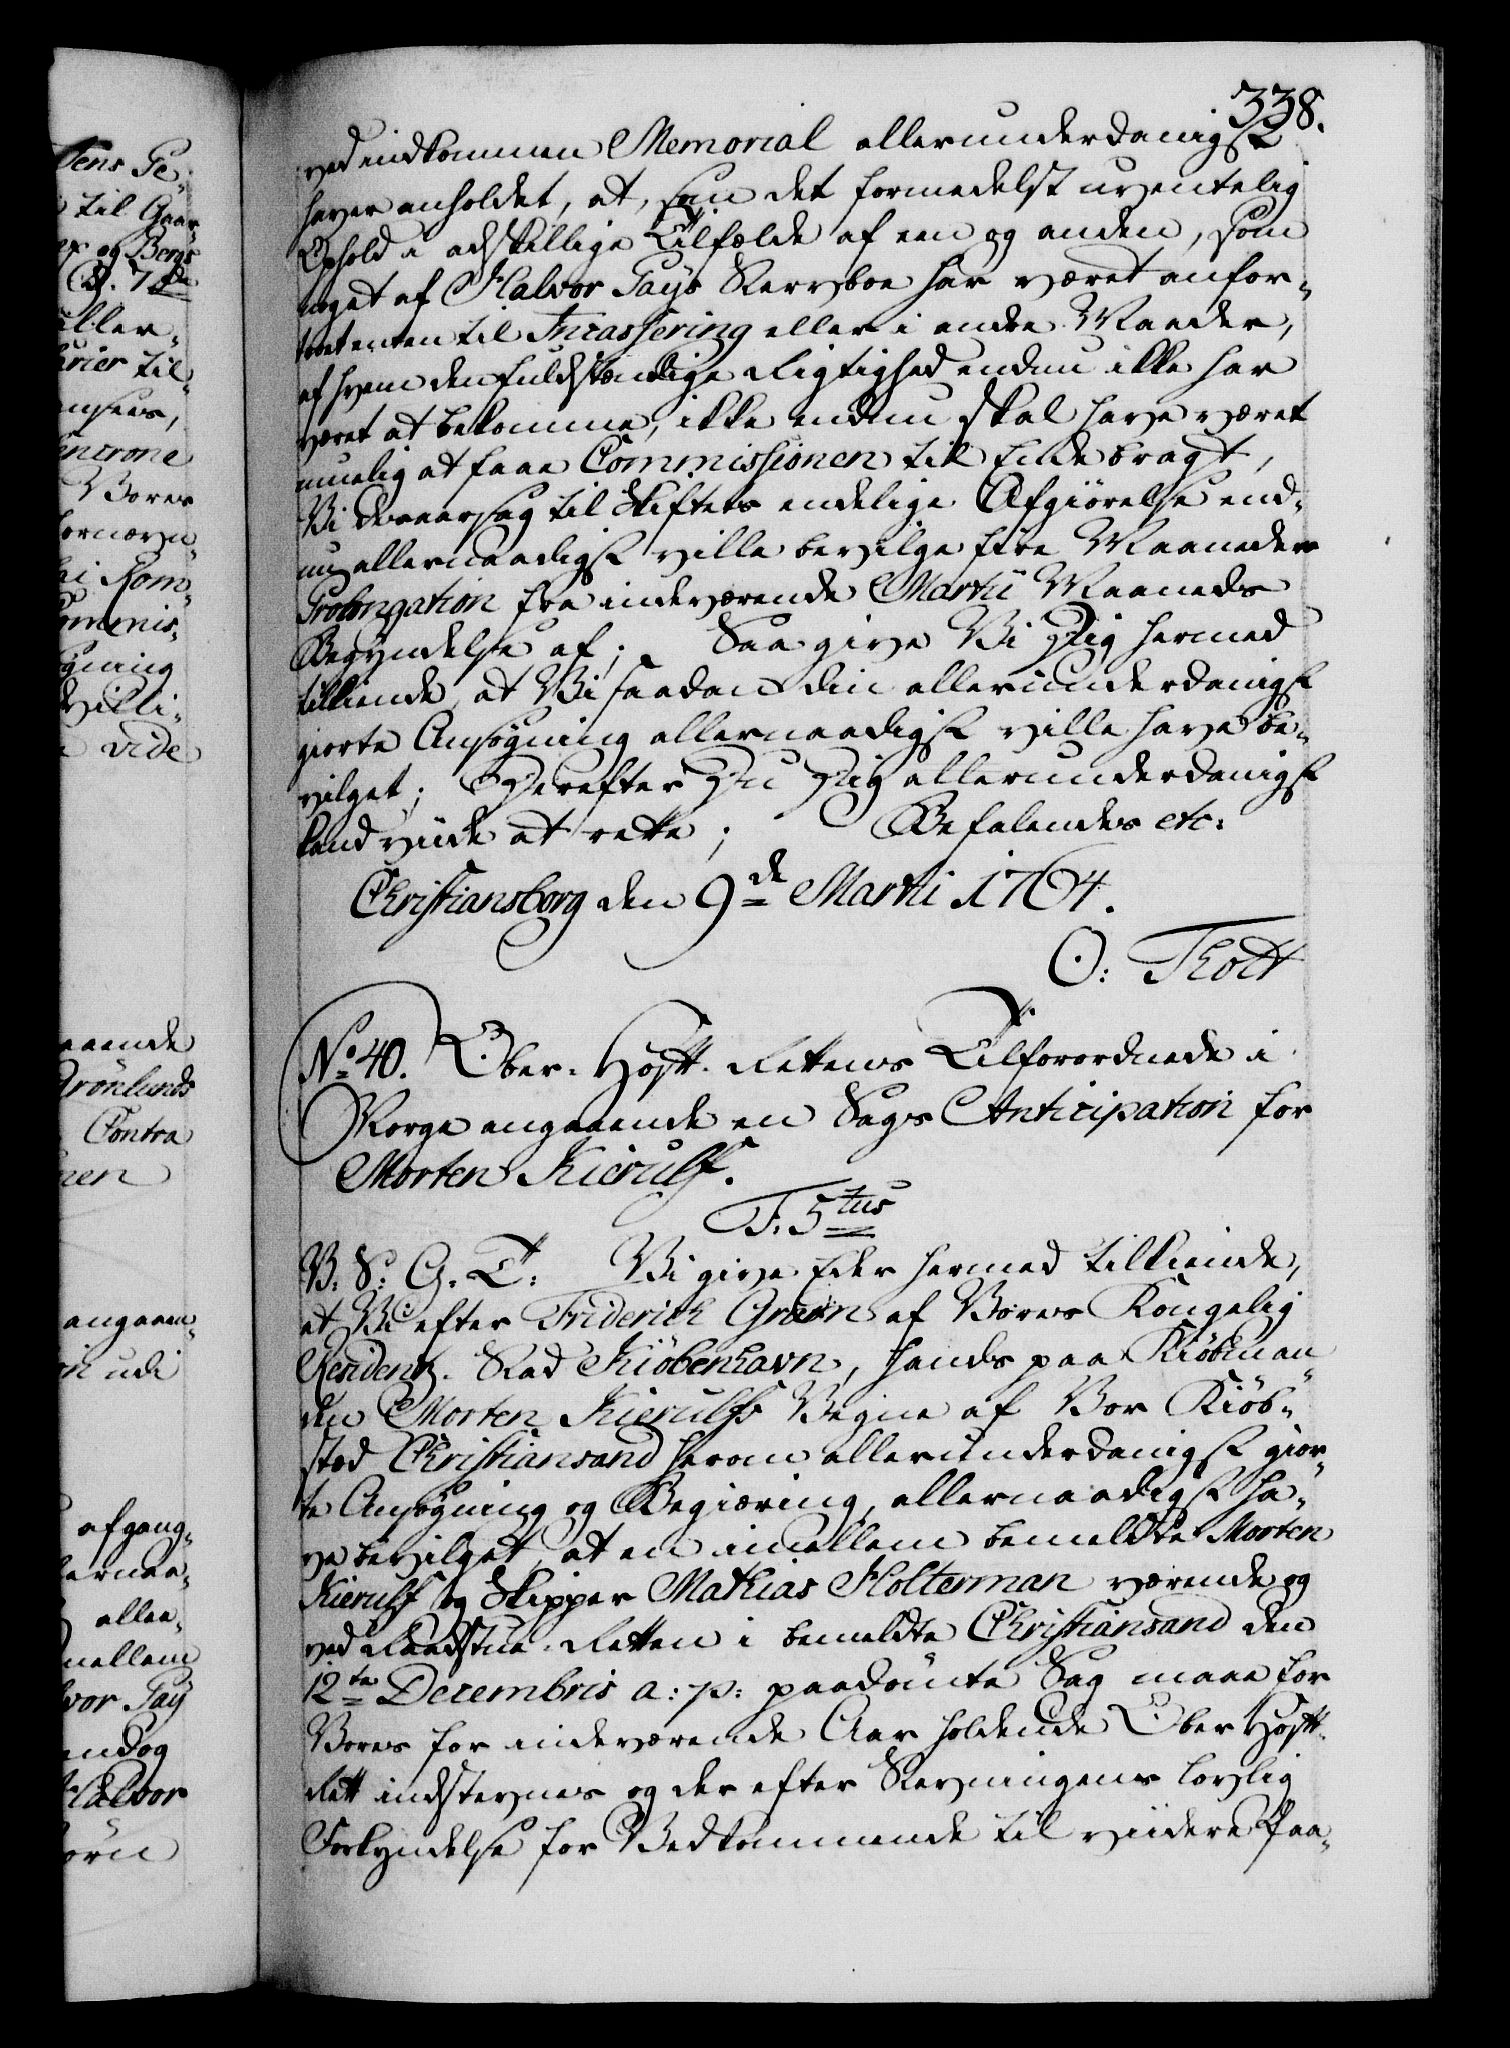 338.
ved indkommen Memorial allerunderdanigst
haver anholdet, at, som det formedelst uventelig
Ophold i adskillige Tilfælde af een og anden, som
noget af Halvor Pays Stervboe har været anfor-
troet enten til Incassering eller i andre Maader,
af hvem den fuldstændige Rigtighed endnu ikke har
været at bekomme, ikke endnu skal have været
muelig at faae Commissionen til Ende bragt,
Vi Aarsag til Skiftets endelige Afgiørelse end-
nu allernaadigst ville bevilge fire Maaneders
Prolongation fra indeværende Martii Maaneds
Begyndelse af; Saa give Vi Dig hermed
tilkiende, at Vi saadan din allerunderdanigst
giorte Ansøgning allernaadigst ville have be-
vilget; Derefter Du Dig allerunderdanigst
kand viide at rette; Befalendes etc:
Christiansborg den 9de Martii 1764.
O: Thott
No 40. Ober-Hoff-Rettens Tilforordnede i
Norge angaaende en Sags Anticipation for
Morten Kierulf.
F: 5tus
V: S: G: T: Vi give Eder hermed tilkiende,
at Vi efter Friderich Gram af Vores Kongelig
Residentz-Stad Kiøbenhavn, hands paa Kiøbman-
den Morten Kierulfs Vegne af Vor Kiøb-
stæd Christiansand herom allerunderdanigst gior-
te Ansøgning og Begiæring, allernaadigst ha-
ve bevilget, at en imellem bemeldte Morten
Kierulf og Skipper Mathias Holterman værende og
ved Raadstue-Retten i bemeldte Christiansand den
12te Decembris a: p: paadømte Sag maae for
Vores for indeværende Aar holdende Ober Hoff-
Rett indstevnes og der efter Stevningens lovlig
Forkyndelse for Vedkommende til viidere Paa-
tens Ge-
til Gaar-
og Bergs
C: 7de
eller-
til
Vores
Com-
Commis-
vide
aaende
Grönlunds
Contra
angaaen-
udi
afgang-
allee-
mellem
vor Pay
endog
Halvor